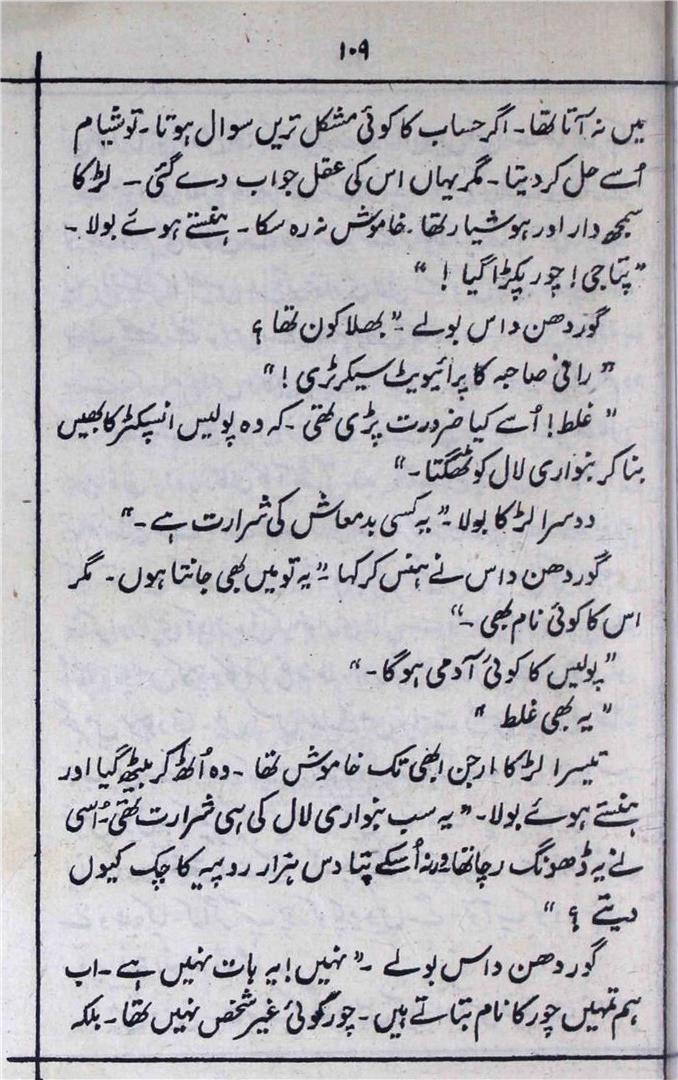 ۱۰۹
میں نہ آتا تھا۔ اگر حساب کا کوئی مشکل ترین سوال ہوتا۔ تو شیام
اُسے حل کر دیتا۔ مگر یہاں اس کی عقل جواب دے گئی۔ لڑکا
سمجھ دار اور ہوشیار تھا۔ خاموش نہ رہ سکا۔ ہنستے ہوئے بولا۔
”پتا جی! چور پکڑا گیا !“
گوردھن داس بولے۔ ”بھلا کون تھا ؟
”رانی صاحبہ کا پرائیویٹ سیکرٹری !“
”غلط! اُسے کیا ضرورت پڑی تھی۔ کہ وہ پولیس انسپکٹر کا بھیس
بنا کر بنواری لال کو ٹھگتا۔“
دوسرا لڑکا بولا۔ ”یہ کسی بدمعاش کی شرارت ہے۔“
گوردھن داس نے ہنس کر کہا۔ ”یہ تو میں بھی جانتا ہوں۔ مگر
اس کا کوئی نام بھی۔“
”پولیس کا کوئی آدمی ہوگا۔“
”یہ بھی غلط“
تیسرا لڑکا ارجن ابھی تک خاموش تھا۔ وہ اُٹھ کر بیٹھ گیا اور
ہنستے ہوئے بولا۔ ”یہ سب بنواری لال کی ہی شرارت تھی۔ اُسی
نے یہ ڈھونگ رچا تھا ورنہ اُسکے پتا دس ہزار روپیہ کا چک کیوں
دیتے ؟“
گوردھن داس بولے۔ ”نہیں! یہ بات نہیں ہے۔ اب
ہم تمہیں چور کا نام بتاتے ہیں۔ چور کوئی غیر شخص نہیں تھا۔ بلکہ